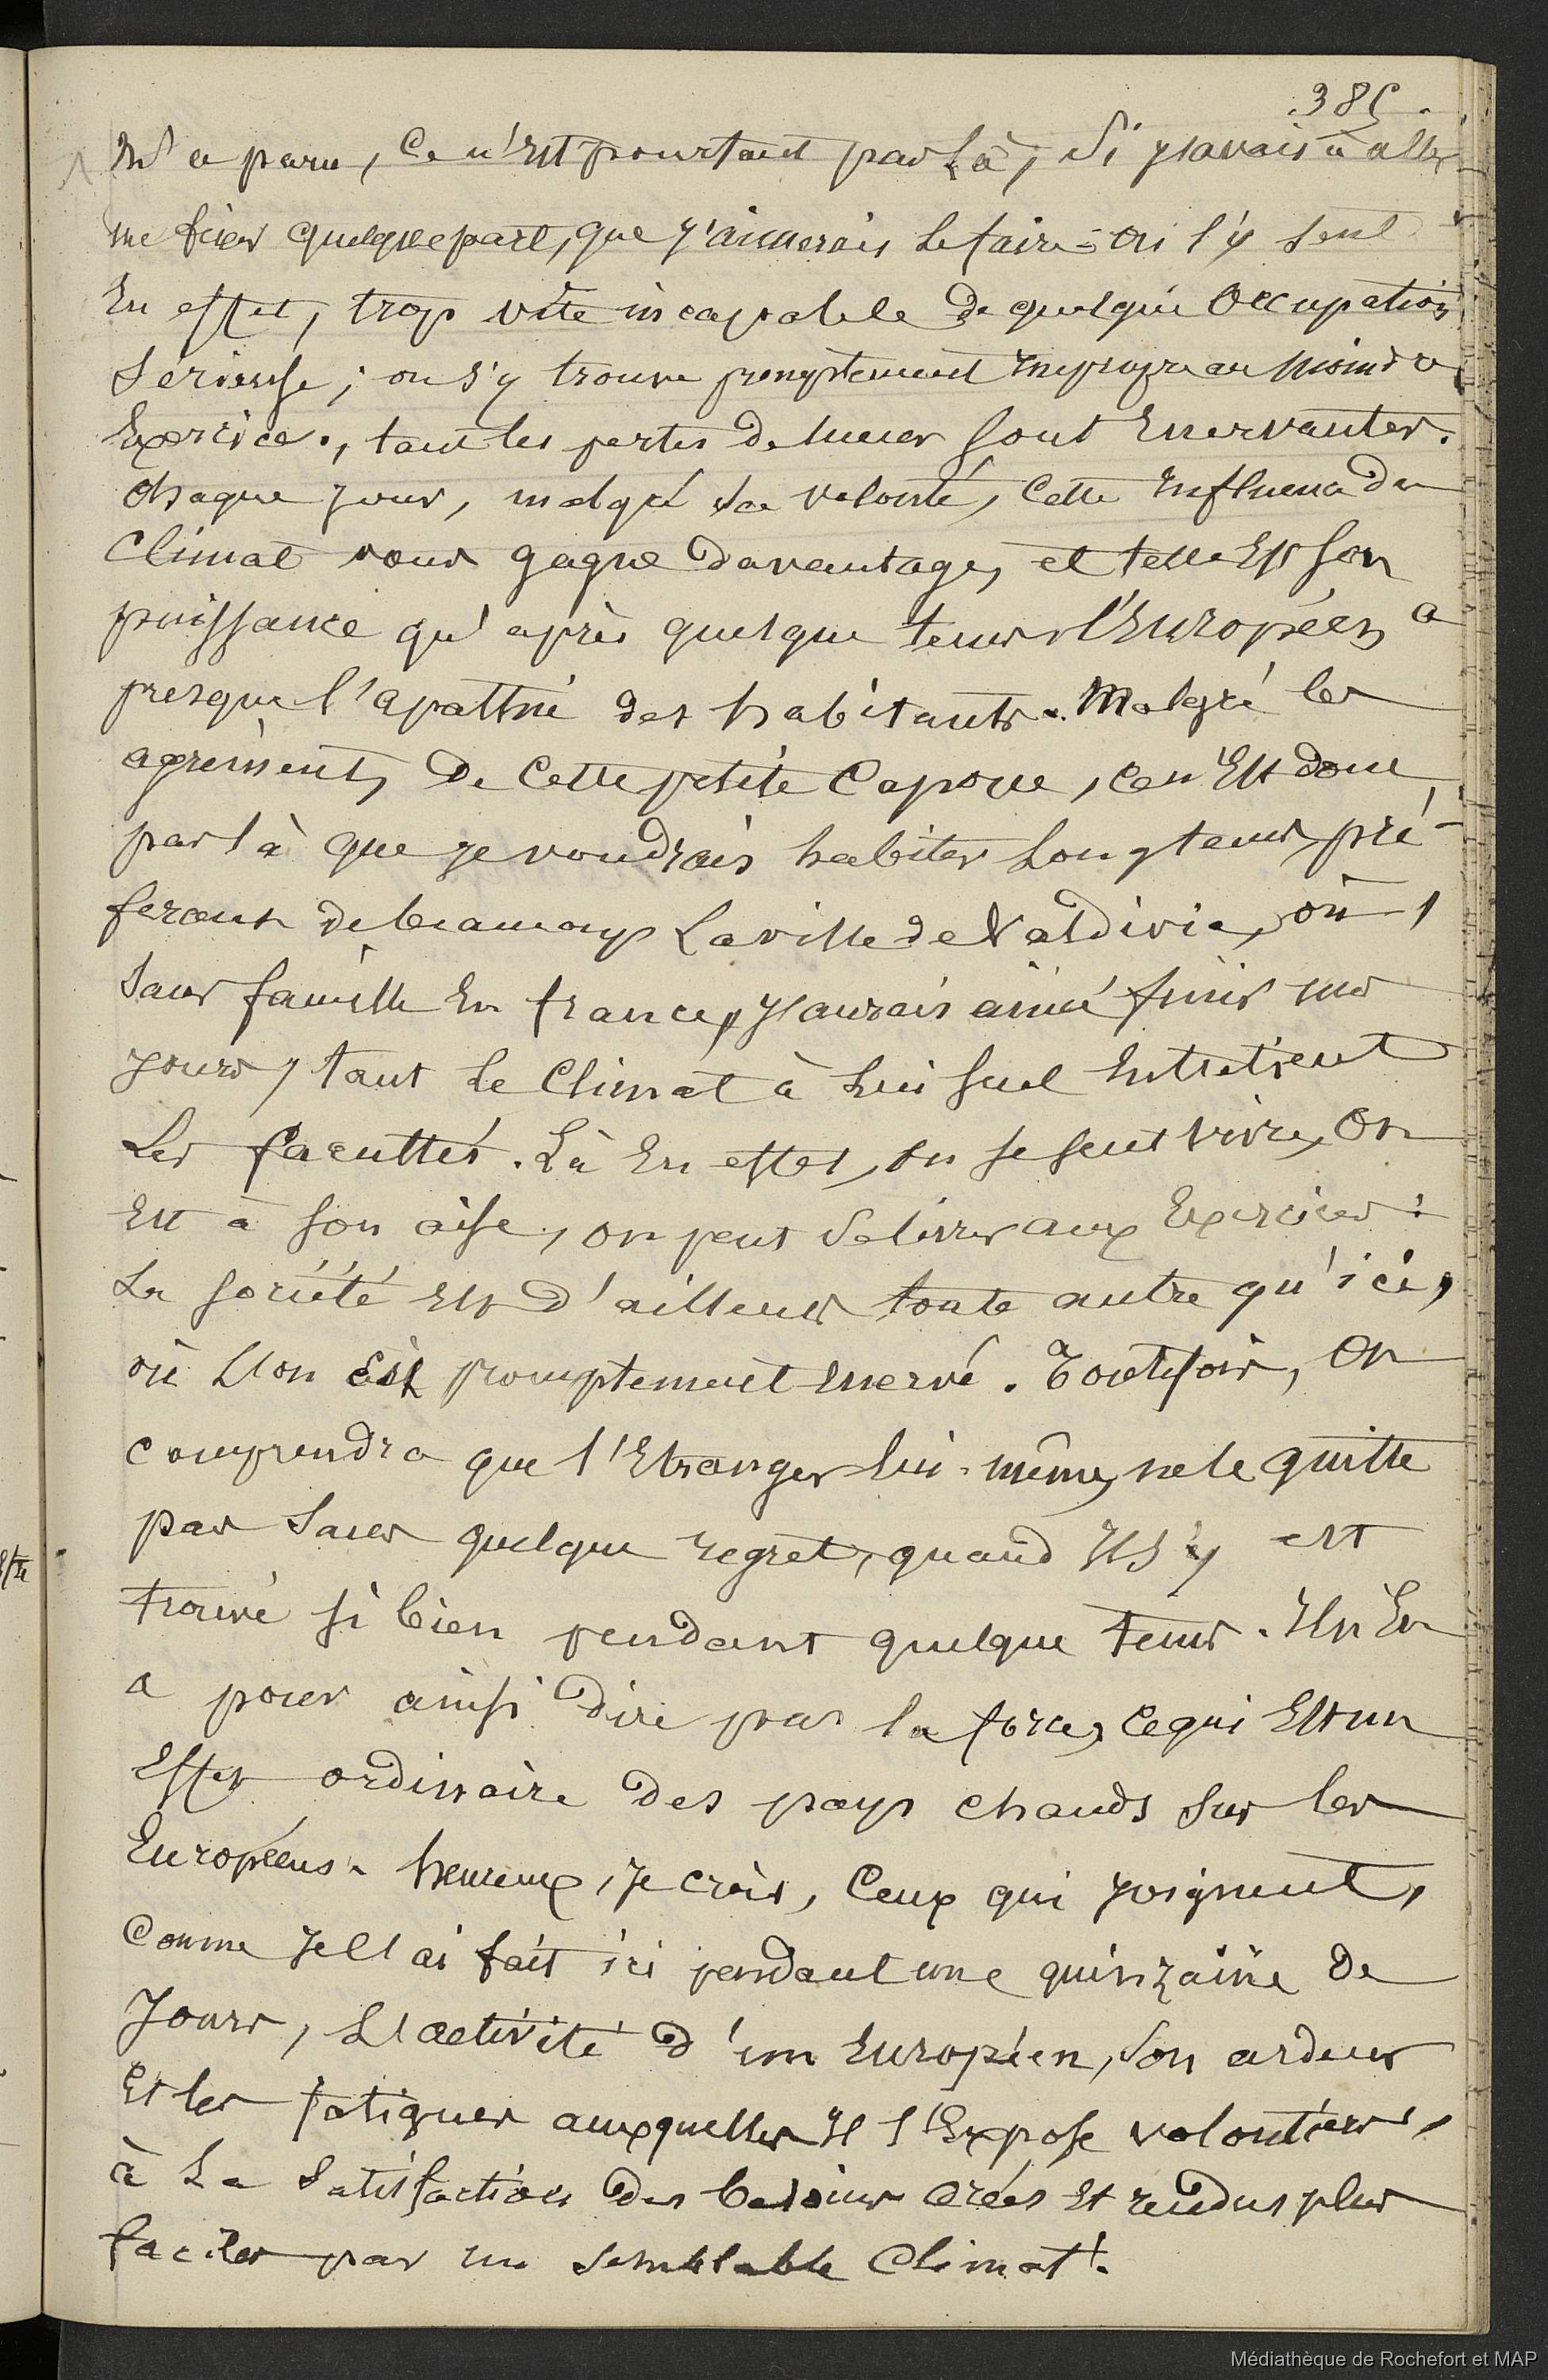 385.
m'a paru, ce n'est pourtant pas là, si j'avais à aller
me fixer quelque part, que j'aimerais le faire : on s'y sent
en effet, trop vite incapable de quelque occupation
serieuse ; on s'y trouve promptement impropre au moindre
exercice, tant les pertes de sueur sont enervantes.
Chaque jour, malgré sa volonté, cette influence du
climat vous gagne davantage, et telle est son
puissance qu'après quelque tems l'Européen a
presque l'apathie des habitants. Malgré les
agréments de cette petite Capoue, ce n'est donc
pas là que je voudrais habiter longtems, pré-
ferant de beaucoup la ville de Valdivia, où,
sans famille en france, j'aurais aimé finir mes
jours, tant le climat à lui seul entretient
les facultés. Là en effet, on se sent vivre, on
est à son aise, on peut se livrer aux exercices :
la société est d'ailleurs toute autre qu'ici,
où l'on est promptement enervé. Toutefois, on
comprendra que l'étranger lui-même, ne le quitte
pas sans quelque regret, quand il s'y est
trouvé si bien pendant quelque tems. Il n'en
a pour ainsi dire pas la force, ce qui est un
effet ordinaire des pays chauds sur les
Européens. heureux, je crois, ceux qui joignent,
comme je l'ai fait ici pendant une quinzaine de
jours, l'activité d'un Européen, son ardeur
et les fatigues auxquelles il s'expose volontiers,
à la satisfaction des besoins créés et rendus plus
faciles par un semblable climat !.
Médiathèque de Rochefort et MAP